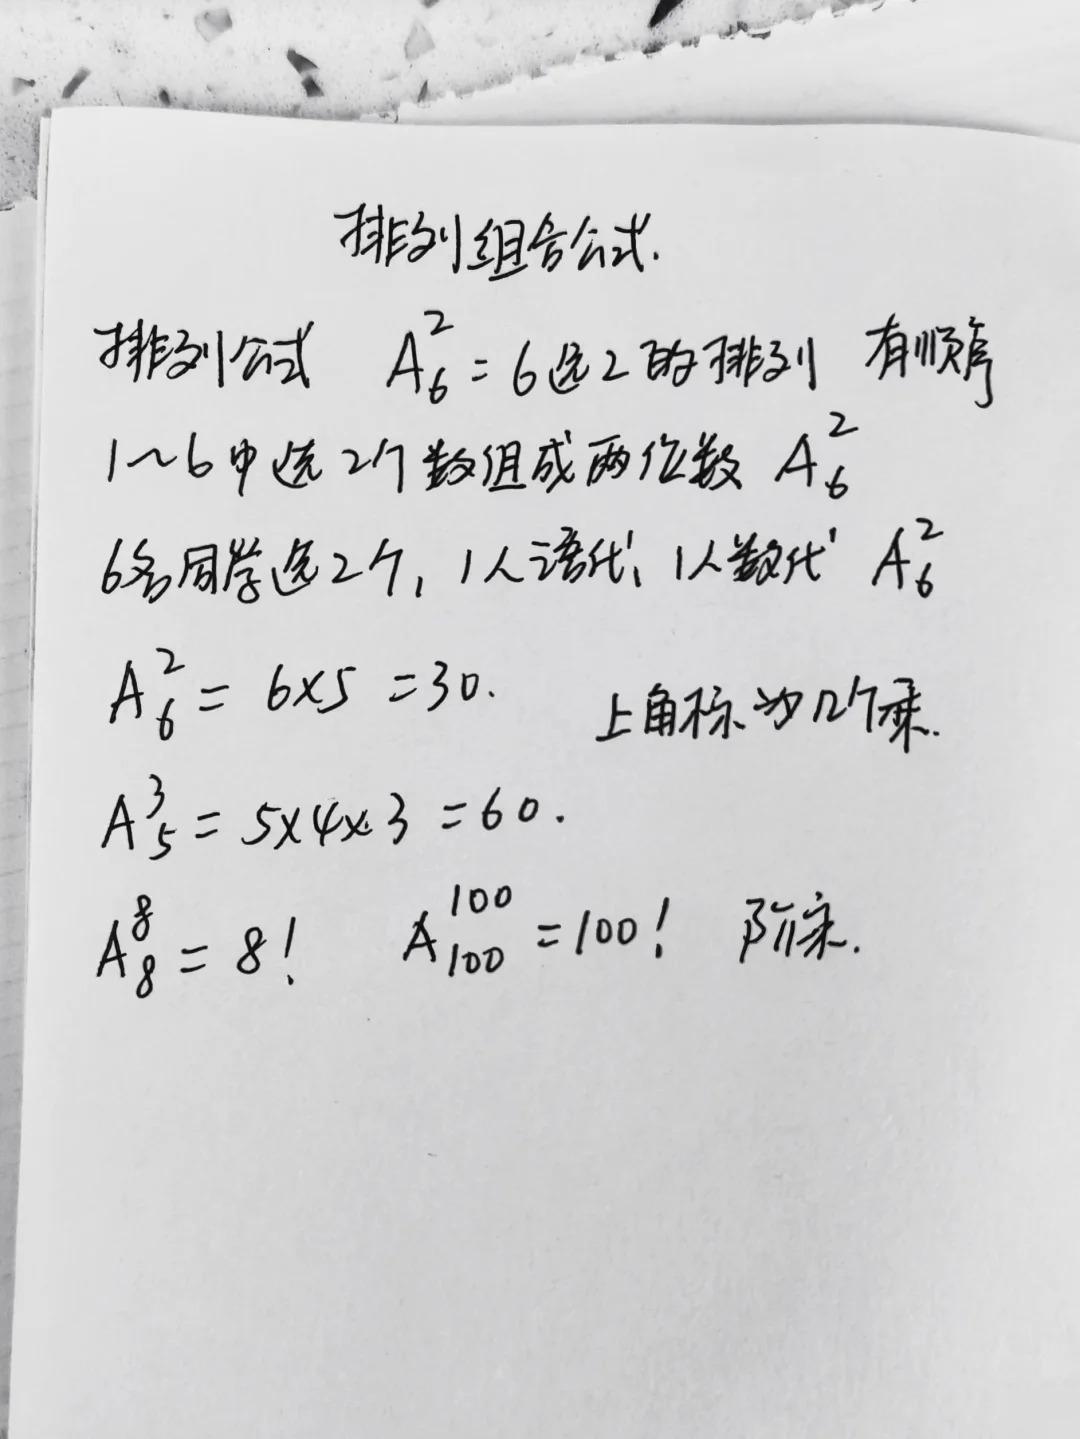 排列组合公式.
排列公式 A₆² = 6选2的排列 有顺序
1~6中选2个数组成两位数 A₆²
6名同学选2个, 1人语代、1人数代 A₆²
A₆² = 6×5 = 30. 上角标为几个乘.
A₅³ = 5×4×3 = 60.
A₈⁸ = 8! A₁₀₀¹⁰⁰ = 100! 阶乘.